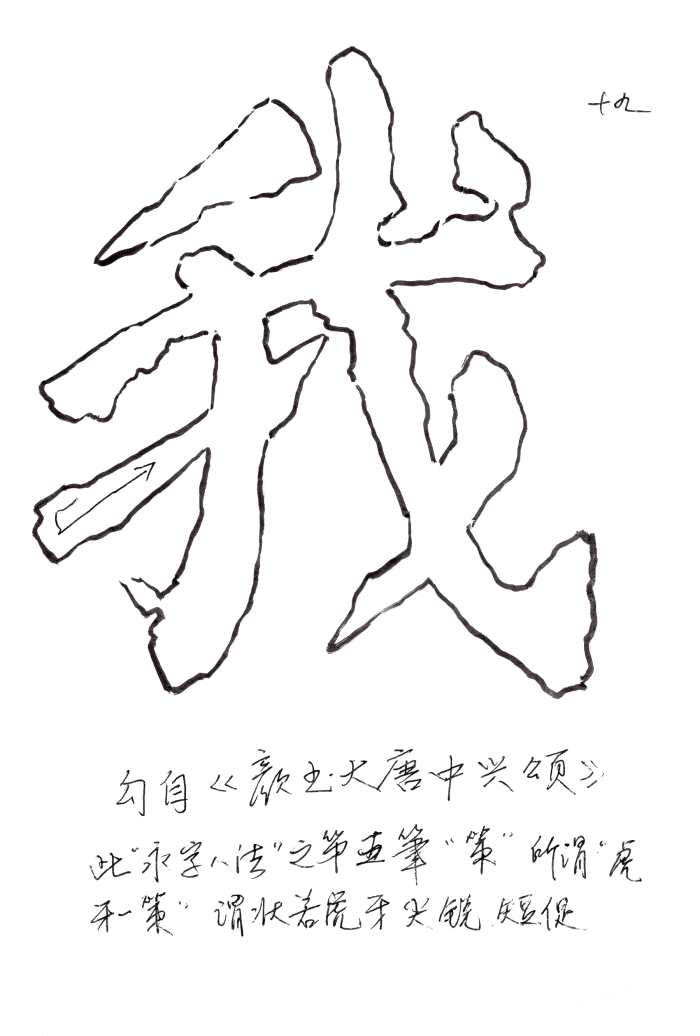 十九
我
勾自《颜书大唐中兴颂》
此"永字八法"之第五筆"策"所谓"虎
牙策"谓状若虎牙尖锐短促